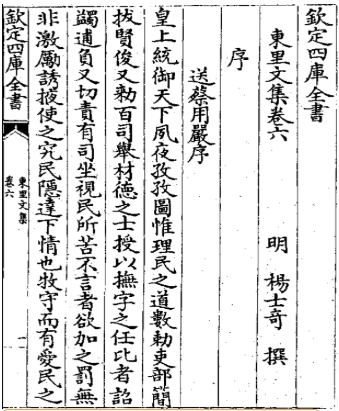 欽定四庫全書
東里文集卷六
明 楊士奇 撰
序
送蔡用嚴序
皇上統御天下夙夜孜孜圖惟理民之道數勅吏部簡
拔賢俊又勅百司舉材德之士授以撫字之任比者詔
蠲逋負又切責有司坐視民所苦不言者欲加之罰無
非激勵誘掖使之究民隱達下情也牧守而有愛民之
欽定四庫全書
東里文集
卷六
一